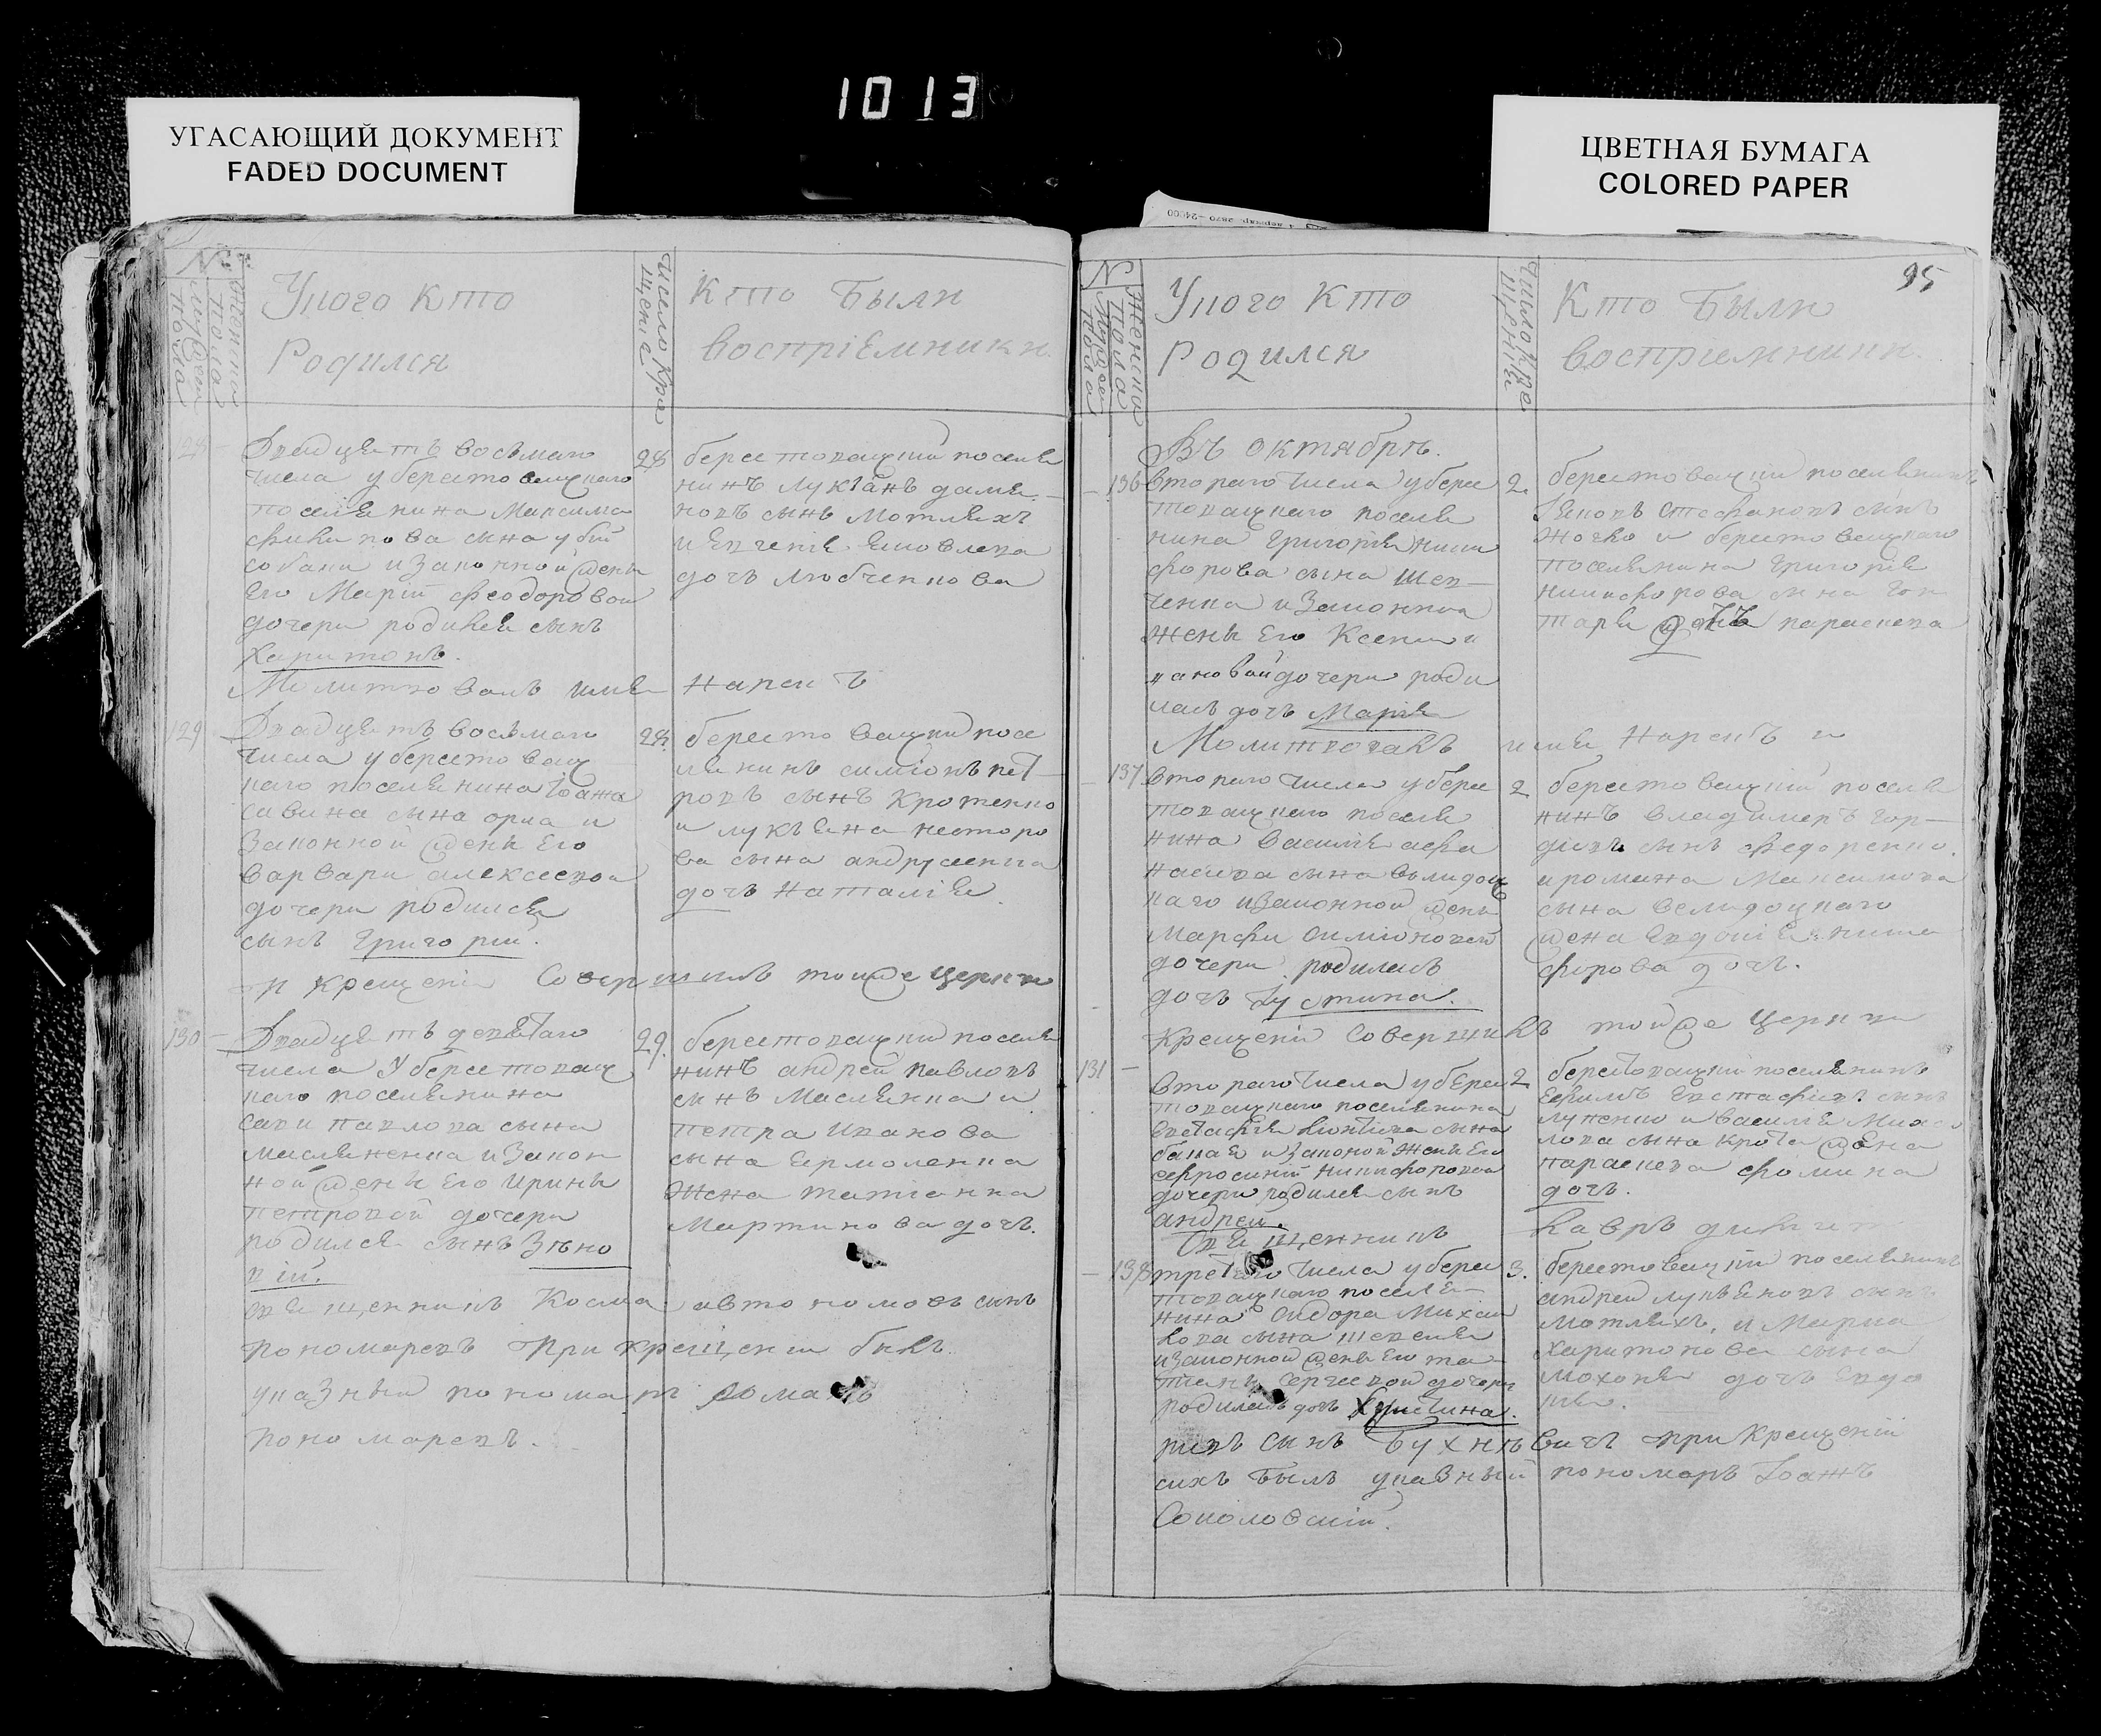 1013
УГАСАЮЩИЙ ДОКУМЕНТ
FADED DOCUMENT
ЦВЕТНАЯ БУМАГА
COLORED PAPER
95
№
Женска пола
Мужска пола
Уного Кто
Родился
Число Кре
щенiя
Кто Были
Воспрiемники
128
Двадцеть восьмаго
числа у берестовецкаго
поселенина Максима
сына убiй
собаки и Законной жены
Его Марiи Феодоровой
дочери родился сынъ
Харитонъ.
28
берестовецкий поселе
нинъ Лукiанъ дамiа
новъ сынъ мотляхъ
и Евгенiя
дочь Любченкова
Молитвовалъ имя Нарекъ
129
Двадцеть восьмаго
числа у берестовец
каго поселенина Iоана
савина сына орла и
Законной жены Его
Варвари алексеевой
дочери родился
сынъ Григорiй.
28
берестовецкий посе
ленинъ симiонъ пет
ровъ сынъ Кротенко
и лукьяна несторо
ва сына андрусенка
дочь Наталiя.
и крещенiе Совершилъ тойже церкви
130
Двадцеть девятаго
числа У берестовец
каго поселенина
савы павлова сына
масляненка и Закон
ной жены Его Ирины
петровой дочери
родился сынъ Зѣно
вiй.
29.
берестовецкий поселе
нинъ андрей павловъ
сынъ Масленка и
петра Иванова
сына Ермоленка
Жена татiанна
Мартинова дочь.
священникъ Косма автономовъ сынъ
пономаревъ при крещенiи былъ
указный пономарь Романъ
пономаревъ.
№
Женска пола
Мужска пола
Уного Кто
Родился
Число Кре
щенiя
Кто Были
воспрiемники
Въ октябрѣ.
136
втораго числа у бере
стовецкаго поселе
нина Григорiя ники
форова сына Шев
ченка и Законной
жены Его Ксении
дочери роди
лась дочь Марiя
2
берестовецкий поселенинъ
Яковъ стефановъ сынъ
Жочко и берестовецкаго
поселенина Григорiя
никифорова сына Гон
таря жена параскева
Молитвовалъ имя Нарекъ и
137
втораго числа у бере
стовецкаго поселе
нина Василiя афа
насиева сына велидоц
каго и Законной жены
Марфы Симiоновой
дочери родилась
дочь Iустина.
2
берестовецкий поселе
нинъ владимеръ гор
дiевъ сынъ федоренко.
и романа Максимова
сына Велидоцкаго
жена Евдокiя ники
форова дочь.
Крещенiе Совершилъ тойже церкви
131
втораго числа у бере
стовецкаго поселенина
Евстафiя Леонтиева сына
бакая и Законой жены Его
Ефросинiи никифоровой
дочери родился сынъ
андрей.
2
берестовецкий поселенинъ
Евстафiевъ сынъ
лупенко и василiя
сына крота жена
параскева фомина
дочь.
Священникъ Лавръ
138
третяго числа у бере
стовецкаго поселе
нина Сидора Михаи
лова сына шевеля
и Законной жены Его та
тианы сергеевой дочери
родилась дочь Христина.
3.
берестовецкий поселенинъ
андрей лукьяновъ сынъ
мотляхъ, и Марка
Харитонова сына
мохоня дочь Евдо
кия.
сынъ Бухнѣвичъ при Крещенiи
сихъ Былъ указный пономарь Iоанъ
Соколовский.